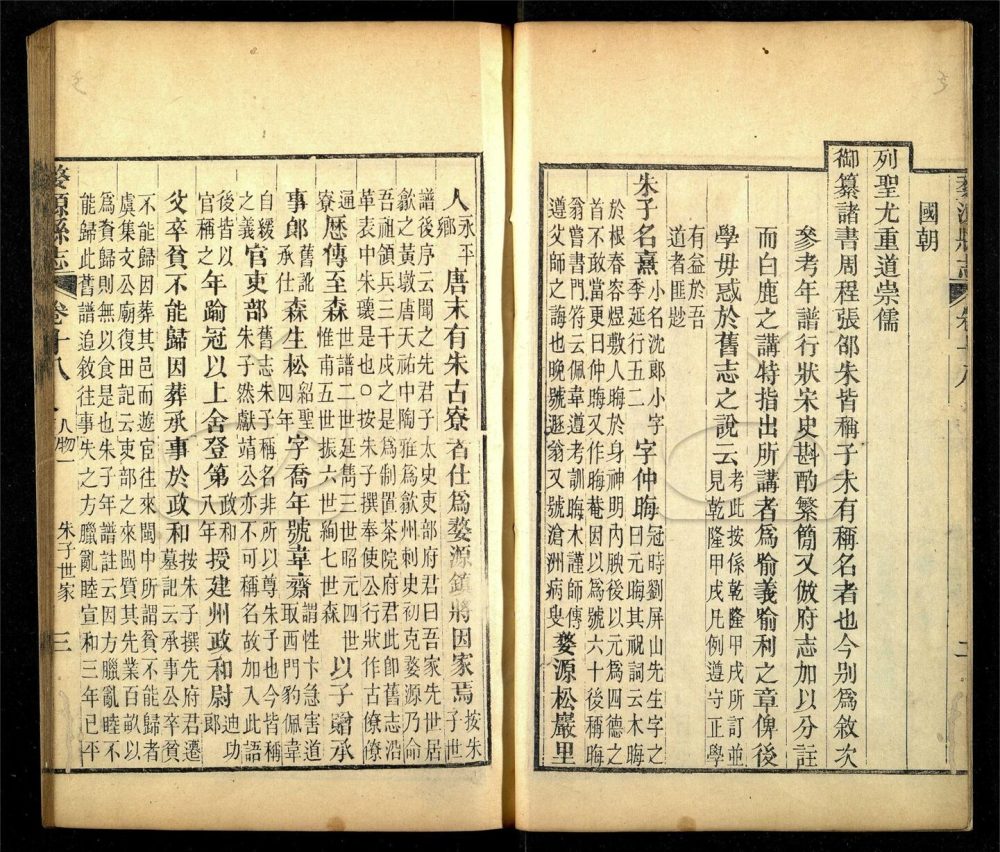 國朝
列聖尤重道崇儒
御纂諸書周程張邵朱皆稱子未有稱名者也今别爲敘次
參考年譜行狀宋史斟酌繁簡又倣府志加以分註
而白鹿之講特指出所講者爲喻義喻利之章俾後
學毋惑於舊志之說云考此按係乾隆甲戌所訂並見乾隆甲戌凡例遵守正學
有益於吾道者匪尠
朱子名熹小名沈郞小字季延行五二字仲晦冠時劉屏山先生字之曰元晦其祝詞云木晦
於根春容煜敷人晦於身神明內腴後以元爲四德之首不敢當更曰仲晦又作晦菴因以爲號六十後稱晦
翁嘗書門符云佩韋遵考訓晦木謹師傳遵父師之誨也晚號遯翁又號滄洲病叟婺源松巖里
人永平鄉唐末有朱古寮者仕爲婺源鎮將因家焉按朱子世
譜後序云聞之先君子太史吏部府君曰吾家先世居歙之黃墩唐天祐中陶雅爲歙州刺史初克婺源乃命
吾祖領兵三千戍之是爲制置茶院府君此卽舊志沿革表中朱瓌是也○按朱子撰奉使公行狀作古僚僚
通寮歷傳至森世譜二世延雋三世昭元四世惟甫五世振六世絢七世森以子贈承
事郞舊訛承仕森生松紹聖四年字喬年號韋齋謂性卞急害道取西門豹佩韋
自緩之義官吏部舊志朱子稱名非所以尊朱子也今皆稱朱子然獻靖公亦不可稱名故加入此語
後皆以官稱之年踰冠以上舍登第政和八年授建州政和尉迪功郞
父卒貧不能歸因葬承事於政和按朱子撰先府君遷墓記云承事公卒貧
不能歸因葬其邑而遊宦往來閩中所謂貧不能歸者虞集文公廟復田記云吏部之來閩質其先業百畝以
爲資歸則無以食是也朱子年譜註云因方臘亂睦不能歸此舊譜追敘往事失之方臘亂睦宣和三年已平
婺源縣志 卷十八 人物一 朱子世家 三